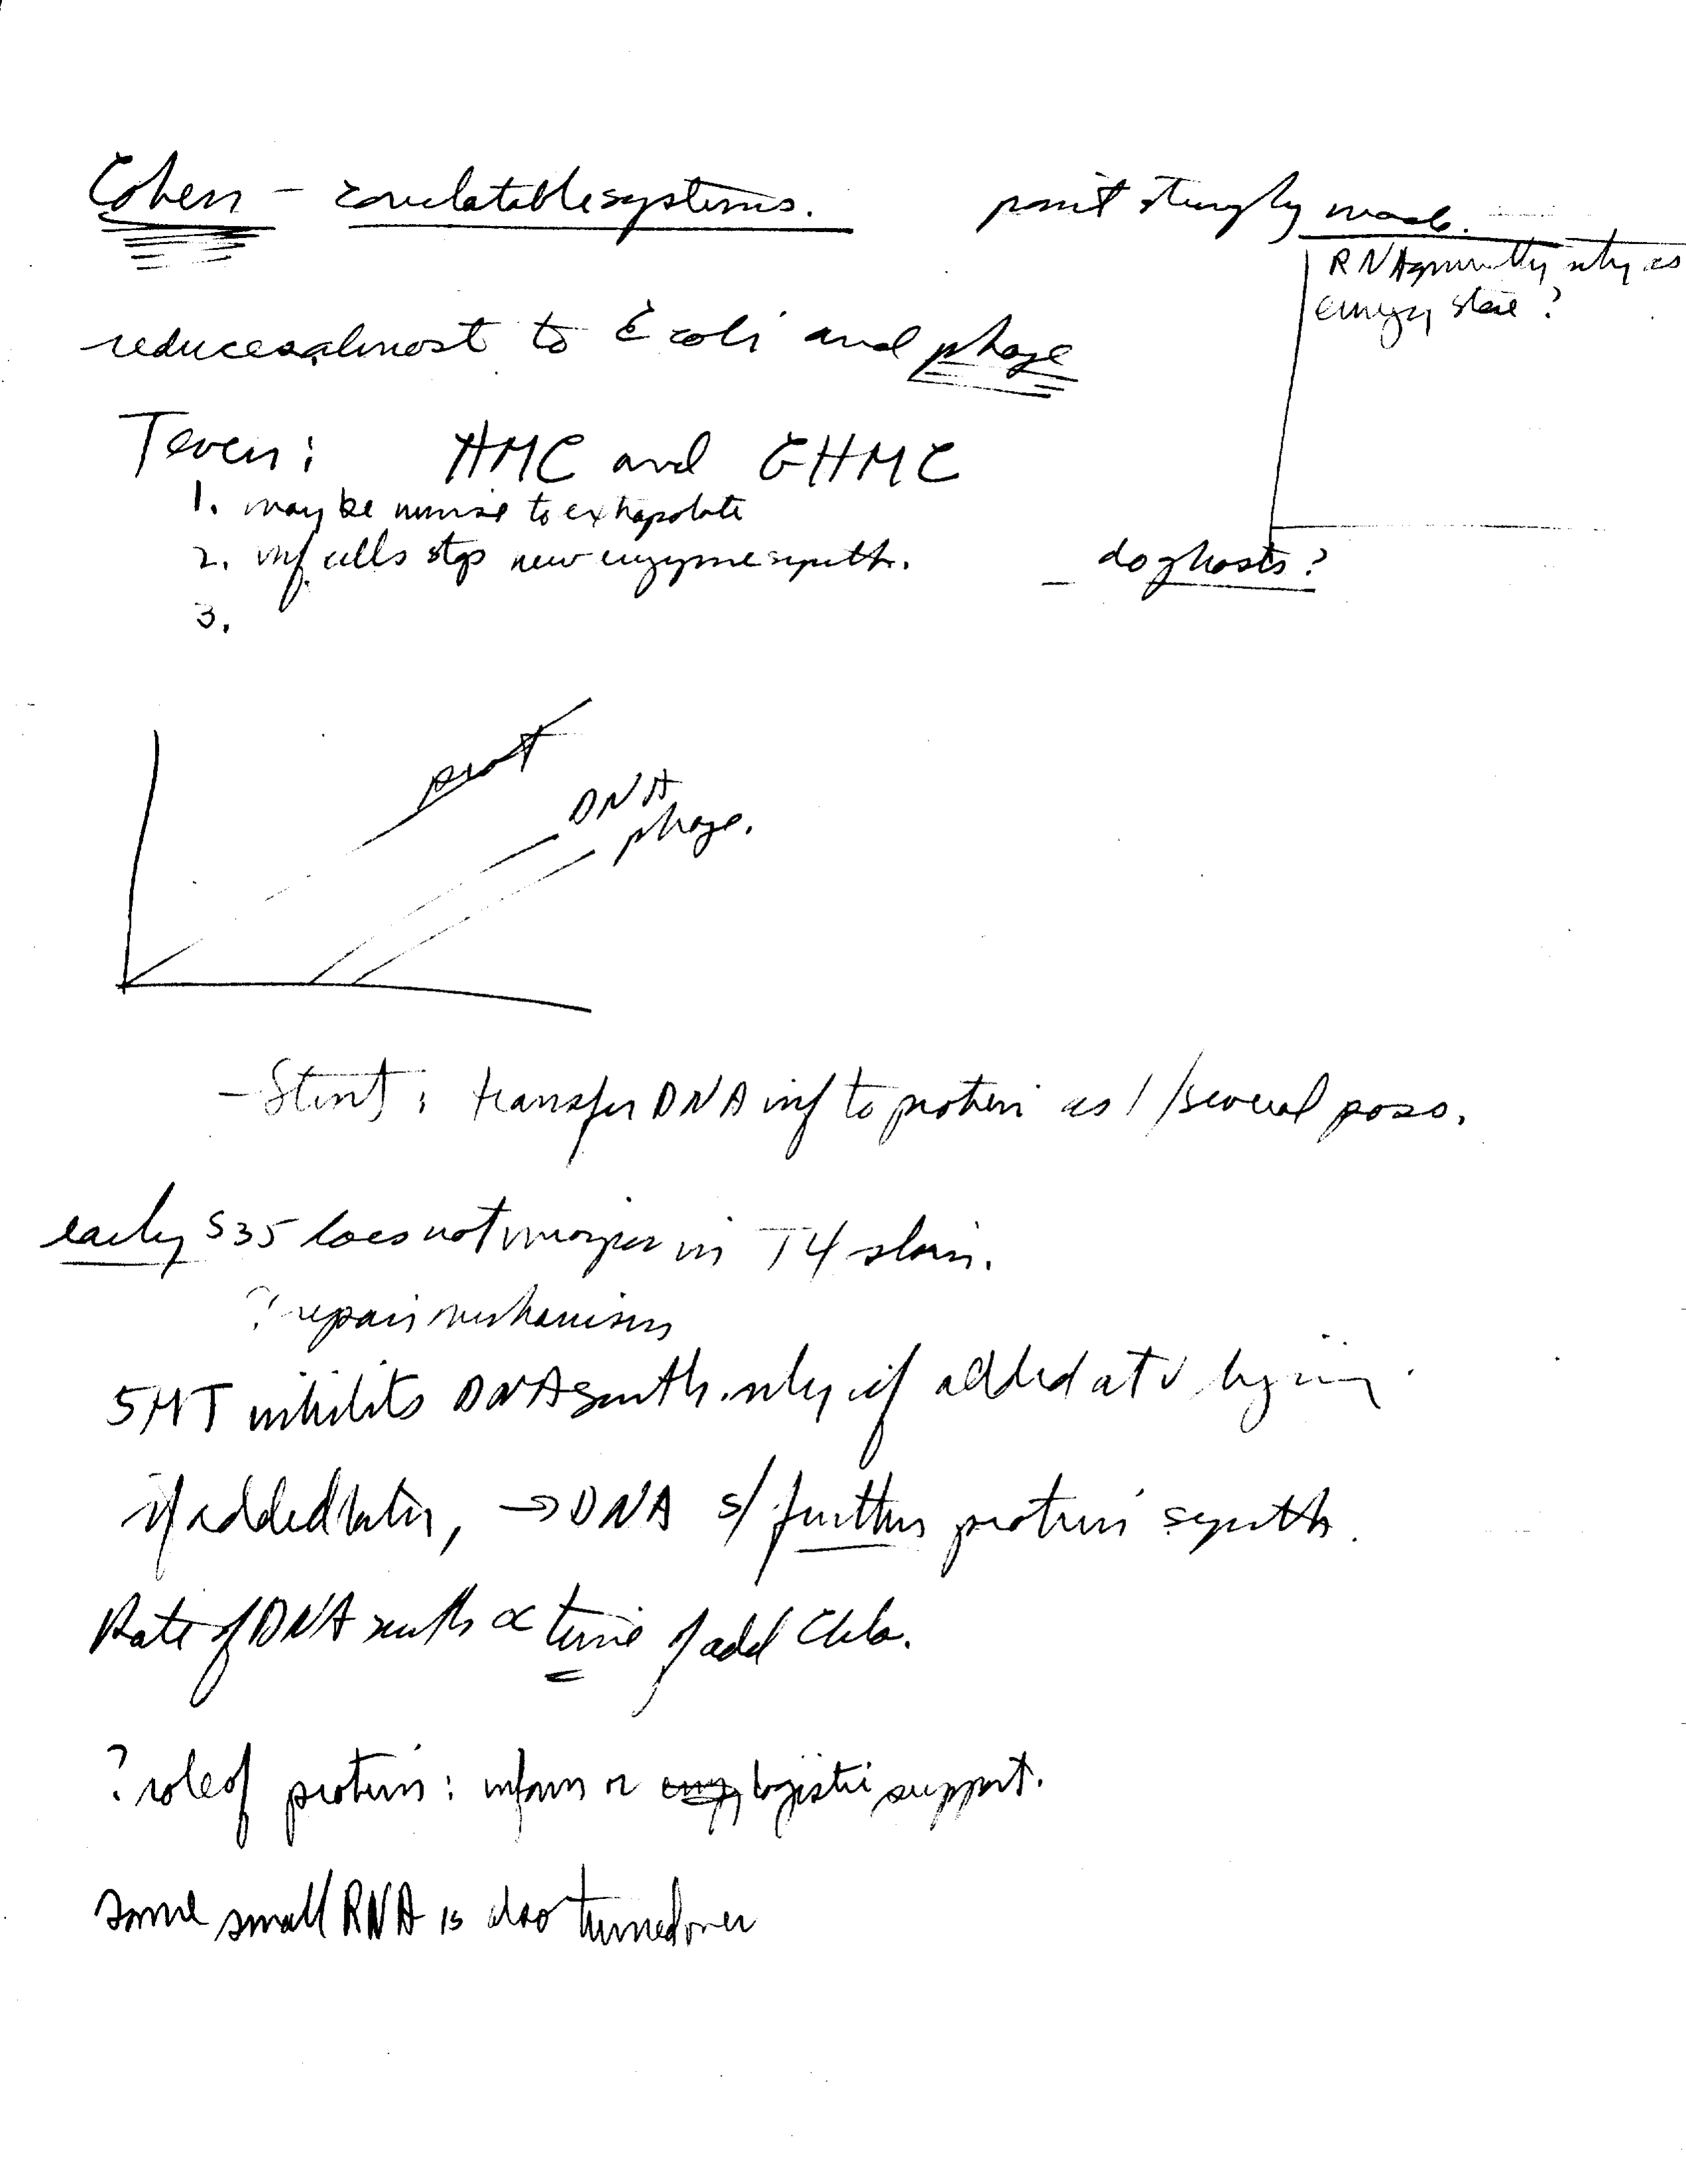 Cohen - correlatable systems. point strongly made.
RNA only as
energy store?
reduces almost to E coli and phage
Teven: HMC and GHMC
1. may be unwise to extrapolate
2. inf cells stop new enzyme synth. - do ghosts?
3.
prot
DNA
phage.
- Stent: transfer DNA inf to protein as 1/several poss.
early S35 does not in T4
? repair mechanism
5MT inhibits DNA synth. only if added at v begin
if added later, → DNA s/ further protein synth.
Rate of DNA synth ∝ time of add Chlo.
? role of protein: inform or logistic support.
some small RNA is also turned over